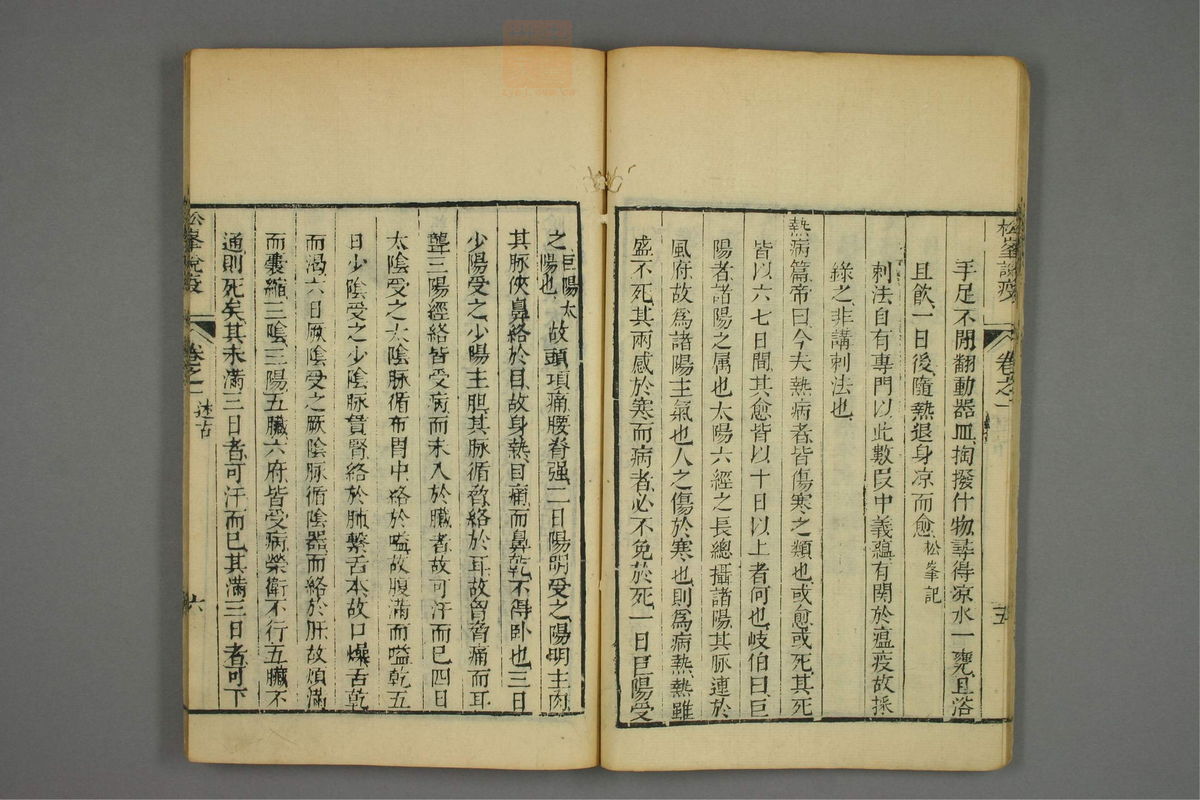 松峯說疫
卷之一
五
手足不閒翻動器皿掏撥什物尋得凉水一甕且浴
且飲一日後隨熱退身凉而愈松峯記
刺法自有專門以此數段中義蘊有關於瘟疫故採
錄之非講刺法也
熱病篇帝曰今夫熱病者皆傷寒之類也或愈或死其死
皆以六七日間其愈皆以十日以上者何也岐伯曰巨
陽者諸陽之属也太陽六經之長總攝諸陽其脉連於
風府故爲諸陽主氣也人之傷於寒也則爲病熱熱雖
盛不死其兩感於寒而病者必不免於死一日巨陽受
之巨陽太陽也故頭項痛腰脊强二日陽明受之陽明主肉
其脉俠鼻絡於目故身熱目痛而鼻乾不得卧也三日
少陽受之少陽主胆其脉循脅絡於耳故胷脅痛而耳
聾三陽經絡皆受病而未入於臟者故可汗而已四日
太陰受之太陰脉循布胃中絡於嗌故腹滿而嗌乾五
日少陰受之少陰脉貫腎絡於肺繫舌本故口燥舌乾
而渴六日厥陰受之厥陰脉循陰器而絡於肝故煩滿
而囊縮三陰三陽五臟六府皆受病榮衛不行五臟不
通則死矣其未滿三日者可汗而已其滿三日者可下
松峯說疫
卷之一
述古
六